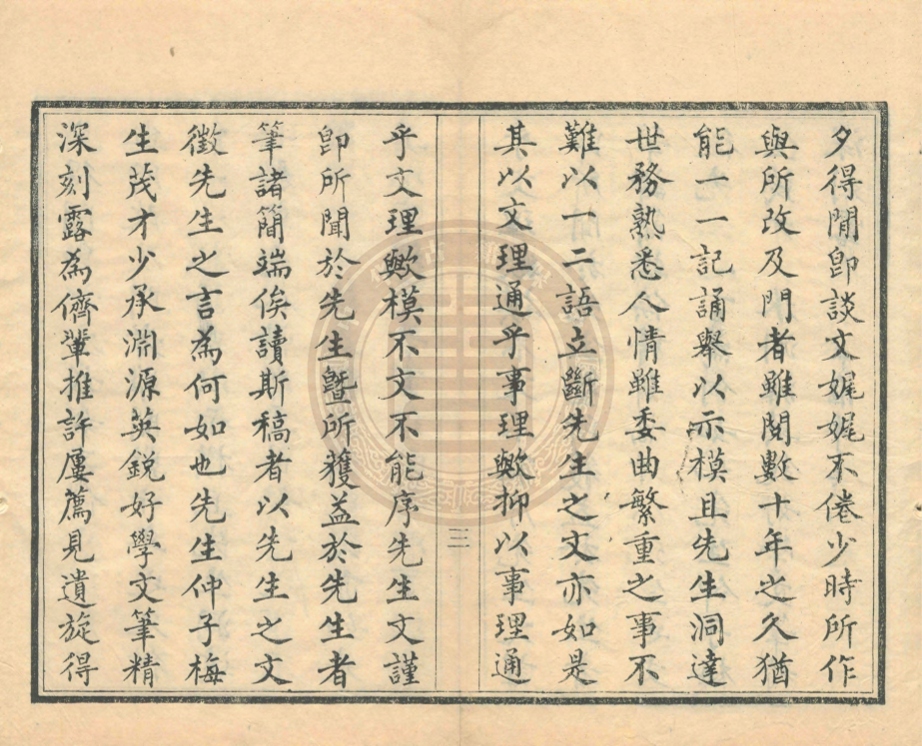 夕得閒卽談文娓娓不倦少時所作
與所改及門者雖閱數十年之久猶
能一一記誦舉以示模且先生洞達
世務熟悉人情雖委曲繁重之事不
難以一二語立斷先生之文亦如是
其以文理通乎事理歟抑以事理通
三
乎文理歟模不文不能序先生文謹
卽所聞於先生曁所獲益於先生者
筆諸簡端俟讀斯稿者以先生之文
徵先生之言為何如也先生仲子梅
生茂才少承淵源英銳好學文筆精
深刻露為儕輩推許屢薦見遺旋得